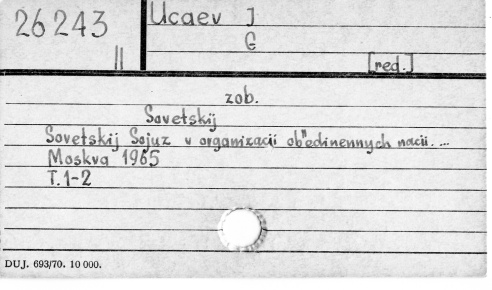 26243
II
Ucaev J
G
[red.]
zob.
Sovetskij
Sovetskij Sojuz v organizacii ob"edinennych nacii. ...
Moskva 1965
T.1-2
DUJ. 693/70. 10 000.